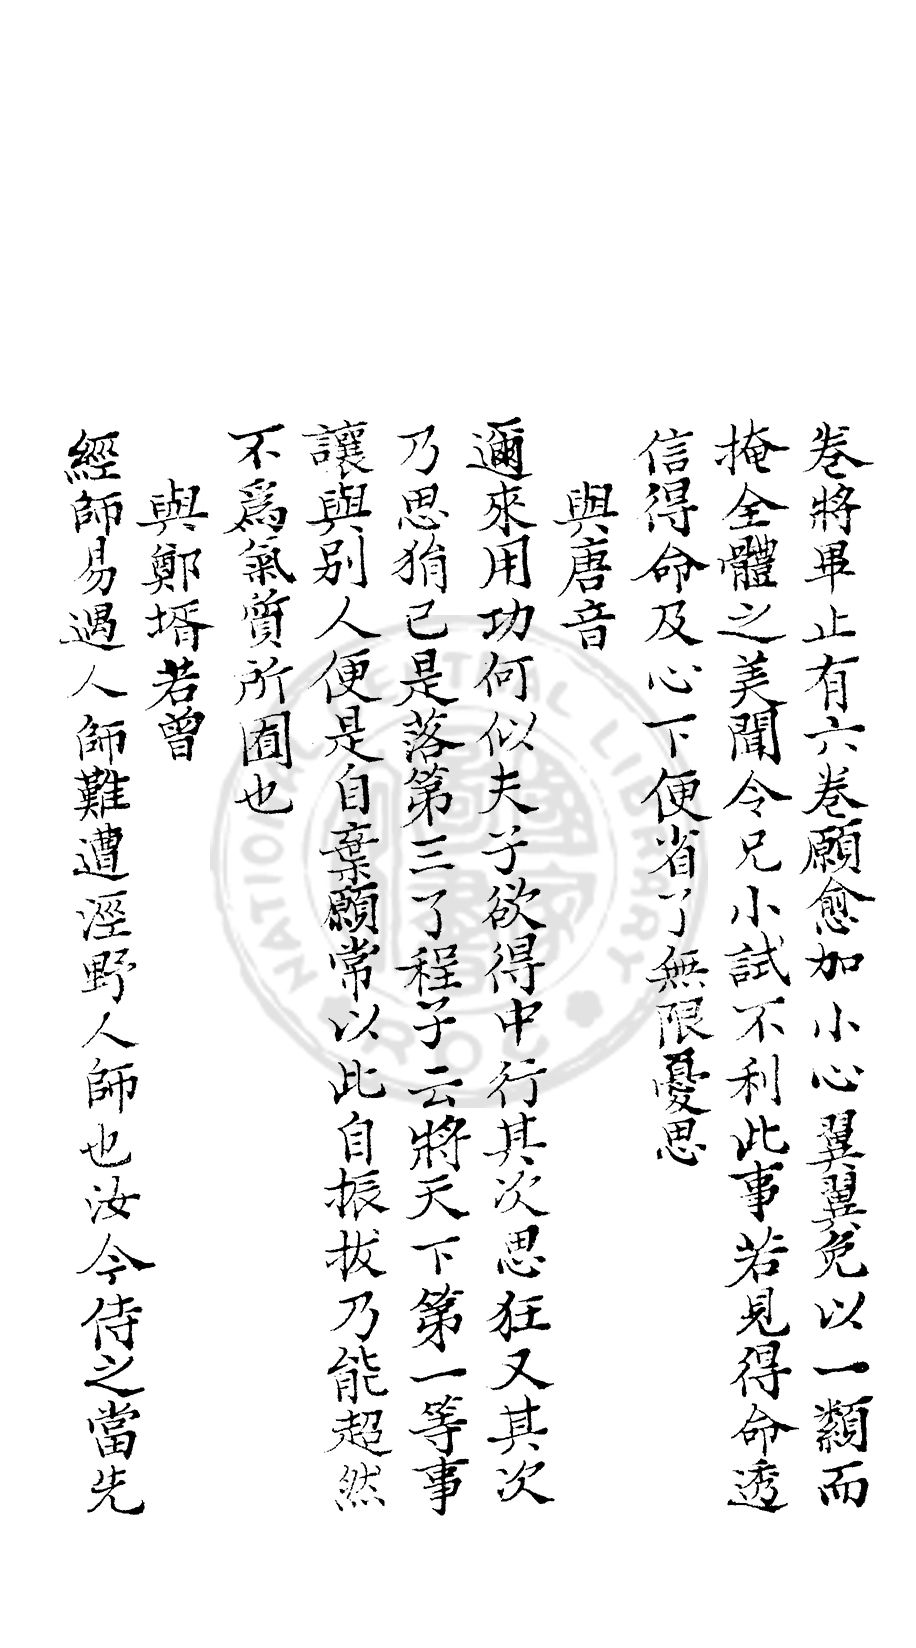 卷將畢止有六卷願愈加小心翼翼免以一纇而
掩全體之美聞令兄小試不利此事若見得命透
信得命及心下便省了無限憂思
與唐音
邇來用功何似夫子欲得中行其次思狂又其次
乃思狷已是落第三了程子云將天下第一等事
讓與别人便是自棄願常以此自振拔乃能超然
不爲氣質所囿也
與鄭壻若曾
經師易遇人師難遭涇野人師也汝今侍之當先
NATIONAL CENTRAL LIBRARY
R.O.C.